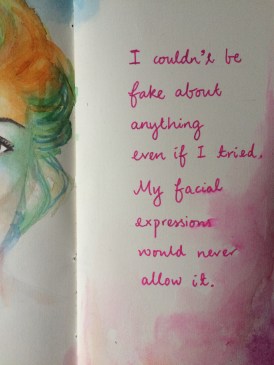 I couldn't be
fake about
anything
even if I tried.
My facial
expressions
would never
allow it.